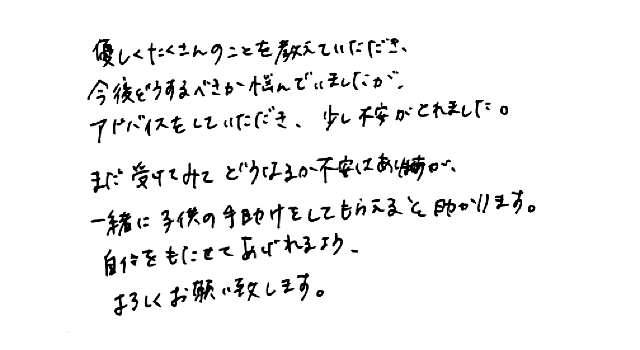 優しくたくさんのことを教えていただき、
今後どうするべきか悩んでいましたが、
アドバイスをしていただき、少し不安がとれました。
まだ受けてみてどうなるか不安はありますが、
一緒に子供の手助けをしてもらえると助かります。
自信をもたせてあげれるよう、
よろしくお願い致します。